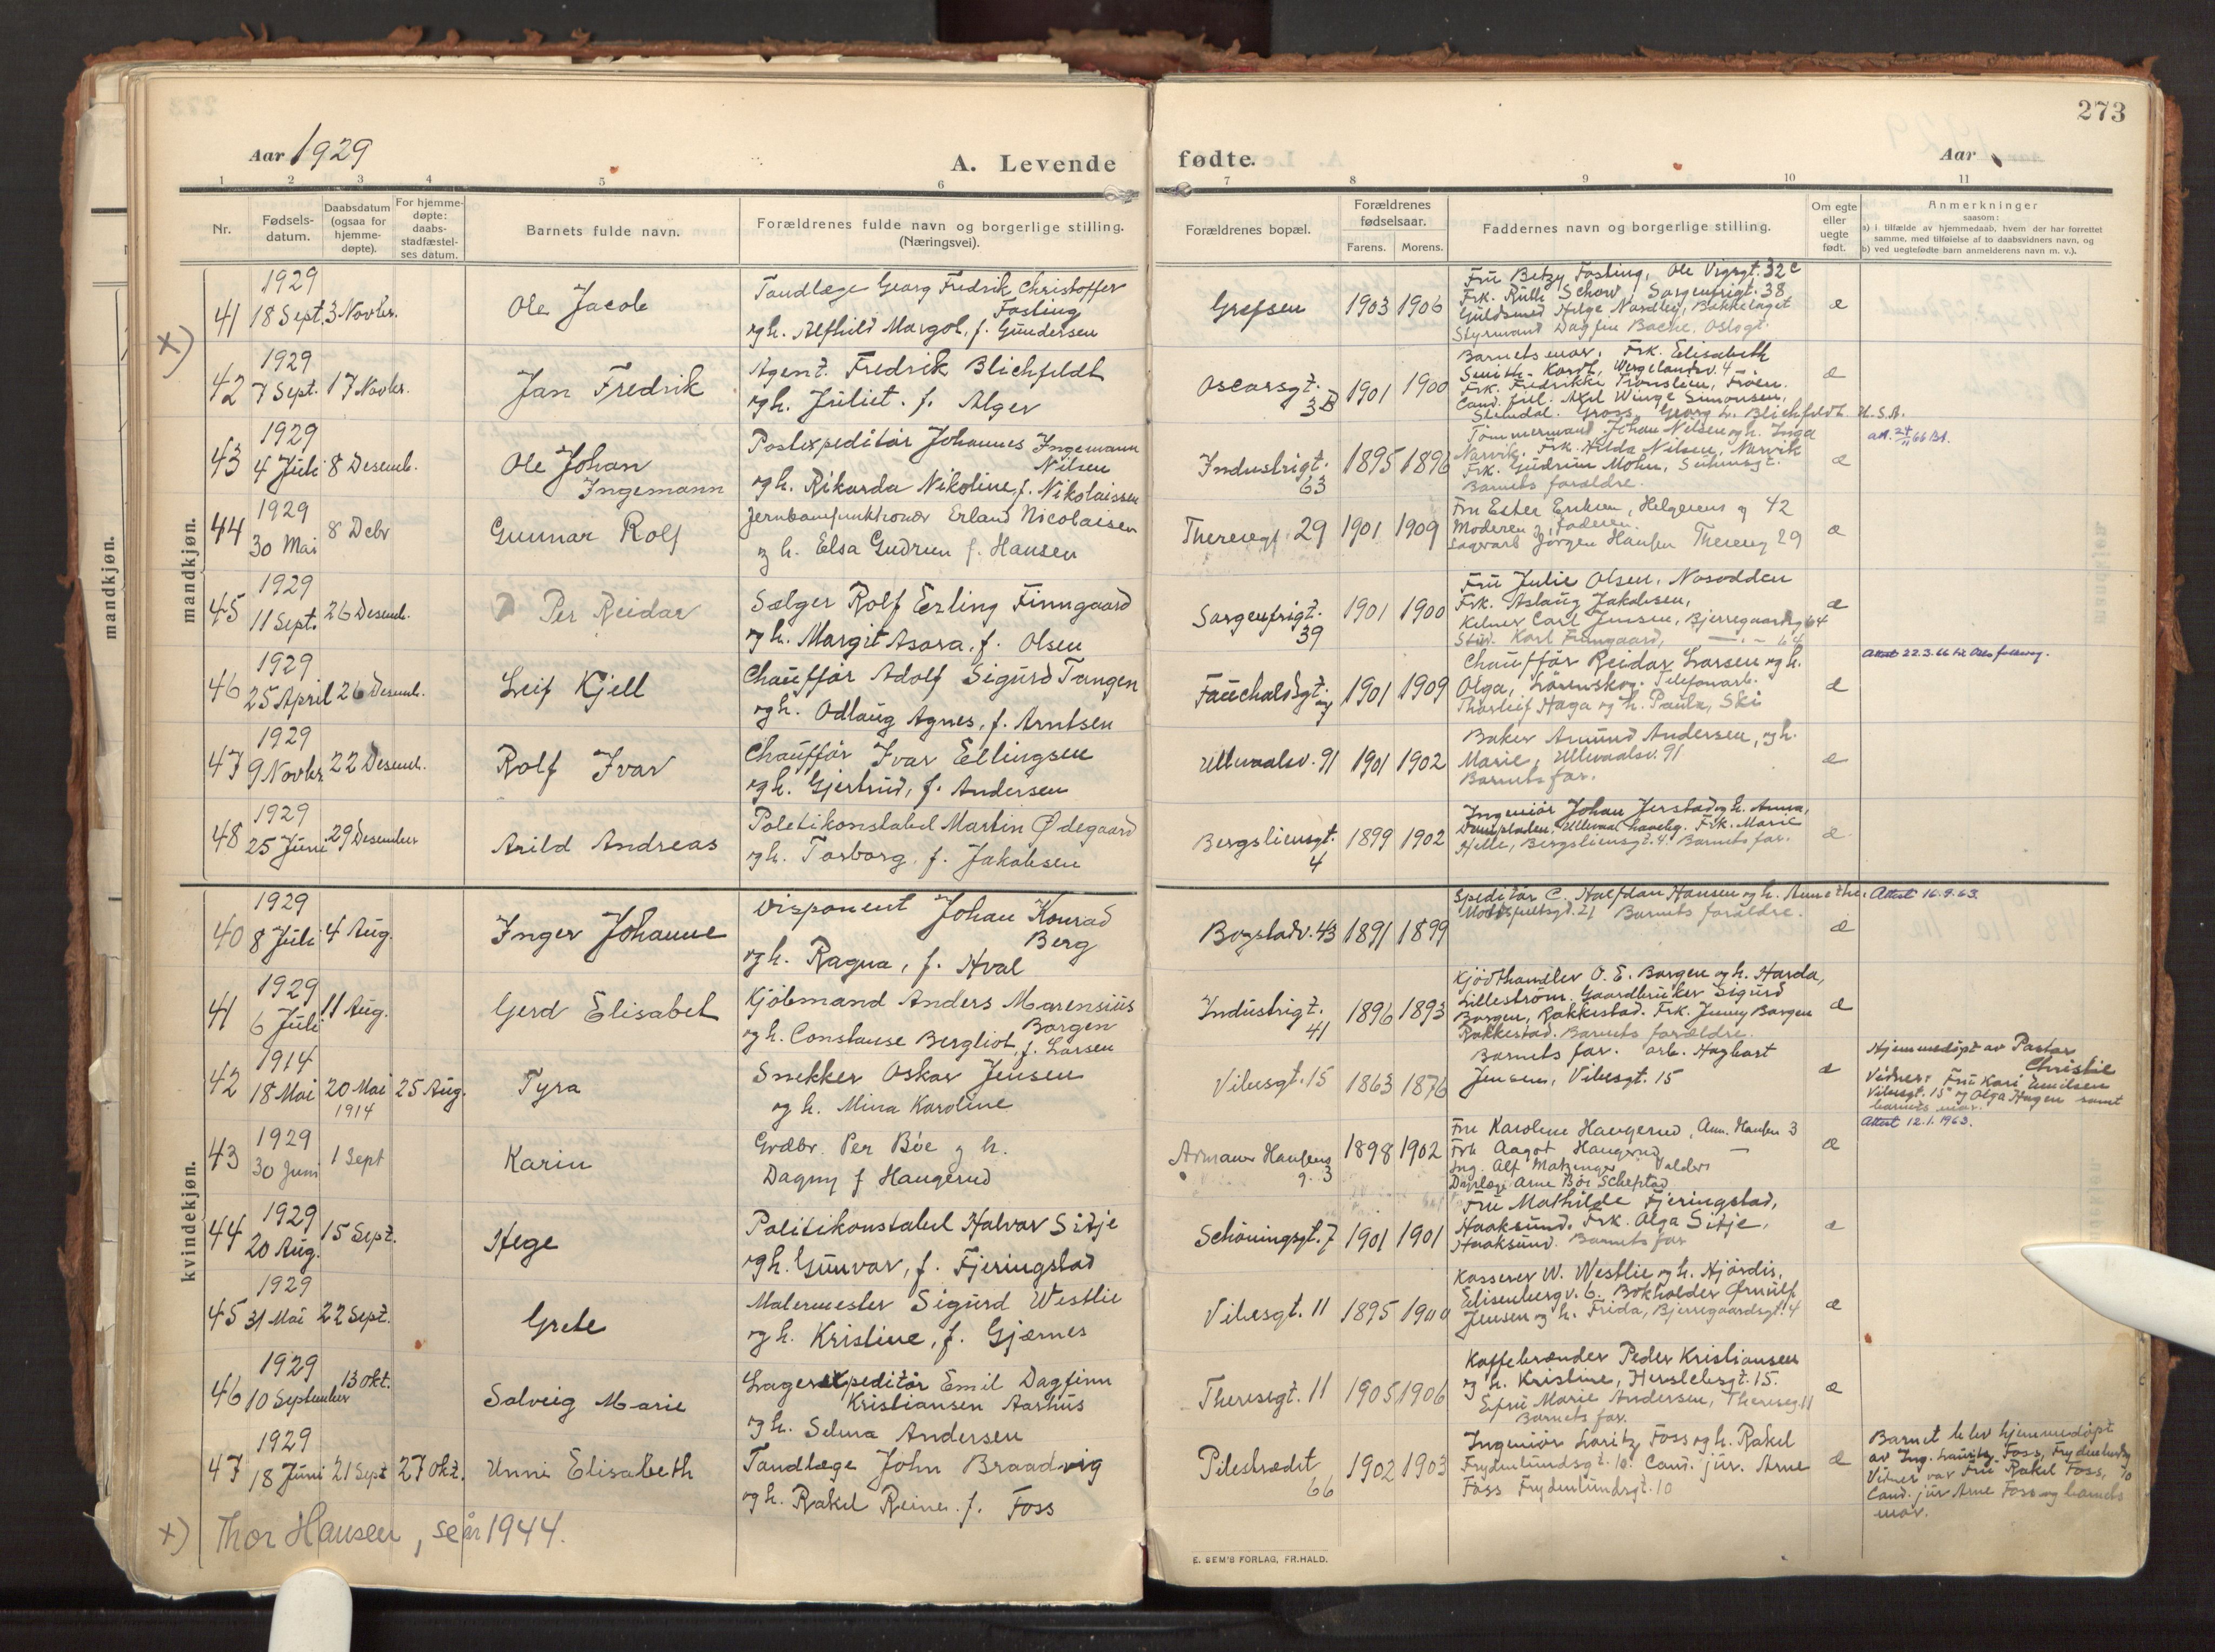 273
Aar 1929
A. Levende fødte.
Aar
1 2 3 4 5 6 7 8 9 10 11
Nr.
Fødsels-
datum.
Daabsdatum
(ogsaa for
hjemme-
døpte).
For hjemme-
døpte:
daabs-
stadfæstel-
ses datum.
Barnets fulde navn.
Forældrenes fulde navn og borgerlige stilling.
(Næringsvei).
Forældrenes bopæl.
Forældrenes
fødselsaar.
Farens. Morens.
Faddernes navn og borgerlige stilling.
Om egte
eller
uegte
født.
Anmerkninger
saasom:
a) i tilfælde av hjemmedaab, hvem der har forrettet
samme, med tilføielse af to daabsvidners navn, og
b) ved uegtefødte barn anmelderens navn m. v.).
mandkjøn.
mandkjøn.
1929
41 18 Sept. 3 Novbr.
Ole Jacob
Tandlæge Georg Fredrik Christoffer
Fasting
og h. Alfhild Margot, f. Gundersen
Grefsen 1903 1906
Fru Betzy Fasting, Ole Vigsgt. 32c
Frk. Ruth Schow, Sorgenfrigt. 38
Guldsmed Helge Nordley, Bækkelaget
Styrmand Dagfin Bache, Oslogt.
æ
x)
1929
42 7 Sept. 17 Novbr.
Jan Fredrik
Agent. Fredrik Blichfeldt
og h. Juliet. f. Alger
Oscarsgt.
3B
1901 1900
Barnets mor. Frk. Elisabeth
Smith-Kordt, Wergelandsv. 4
Frk. Fredrikke Fröen.
Cand. fil. Axel Winge Simonsen,
Slemdal. Gross. Georg L. Blichfeldt U.S.A.
æ
1929
43 4 Juli 8 Desemb.
Ole Johan
Ingemann
Postexpeditør Johannes Ingemann
Nilsen
og h. Rikarda Nikoline, f. Nikolaissen
Industrigt.
63
1895 1896
Tømmermand Johan Nilsen og h. Inga
Narvik. Frk. Hilda Nilsen, Narvik
Frk. Gudrun Mohn,
Barnets forældre.
æ
1929
44 30 Mai 8 Debr
Gunnar Rolf
Jernbanefunktionær Erland Nicolaisen
og h. Elsa Gudrun f. Hansen
Theresegt 29 1901 1909
Fru Ester Eriksen, Helgesens g 42
Moderen og faderen.
Lagerarb Jørgen Hansen Thereseg 29
æ
1929
45 11 Sept. 26 Desemb.
Per Reidar
Sælger Rolf Erling Finngaard
og h. Margit Asora, f. Olsen
Sorgenfrigt.
39
1901 1900
Fru Julie Olsen, Nesodden
Frk. Aslaug Jakobsen,
Kelner Carl Jensen, Bjerregaardsg 64
Stud. Karl Finngaard, — " — 64
æ
1929
46 25 April 26 Desemb.
Leif Kjell
Chauffør Adolf Sigurd Tangen
og h. Odlaug Agnes, f. Arntsen
Fauchaldsgt.
1901 1909
Chauffør Reidar Larsen og h.
Olga, Lørenskog. Telefonarb.
Thorleif Haga og h. Paula, Ski
æ
Attest 22.3.66
1929
47 9 Novbr 22 Desemb.
Rolf Ivar
Chauffør Ivar Ellingsen
og h. Gjertrud, f. Andersen
Ullevaalsv. 91 1901 1902
Baker Amund Andersen, og h.
Marie, Ullevaalsv. 91
Barnets far.
æ
1929
48 25 Juni 29 Desember
Arild Andreas
Politikonstabel Martin Ødegaard
og h. Torborg, f. Jakobsen
Bergsliensgt.
4
1899 1902
Ingeniør Johan Jerstad og h. Anna,
Damplassen, Ullevaal haveby. Frk. Marie
Helle, Bergsliensgt. 4. Barnets far.
æ
kvindekjøn.
1929
40 8 Juli 4 Aug.
Inger Johanne
Disponent Johan Konrad
Berg
og h. Ragna, f. Hval
Bogstadv. 43 1891 1899
Speditør C. Halfdan Hansen og h. Annethe
21 Barnets forældre.
æ
Attest 16.9.63.
1929
41 6 Juli 11 Aug.
Gerd Elisabet
Kjøbmand Anders Marensius
Borgen
og h. Constanse Bergliot, f. Larsen
Industrigt.
41
1896 1893
Kjødthandler O. E. Borgen og h. Harda,
Lilleström. Gaardbruker Sigurd
Borgen, Rakkestad. Frk. Jenny Borgen
Rakkestad. Barnets forældre.
æ
1914
42 18 Mai 20 Mai 25 Aug.
1914
Tyra
Snekker Oskar Jensen
og h. Mina Karoline
Vibesgt. 15 1863 1876
Barnets far. arb. Hagbart
Jensen, Vibesgt. 15
æ
Hjemmedøpt av Pastor
Christie
Vidner: Fru Kari Emilsen
Vibesgt. 15 og Olga Hagen samt
barnets mor.
Attest 12.1.1963.
1929
43 30 Juni 1 Sept
Karin
Grdbr. Per Bøe og h.
Dagny f Haugerud
Armauer Hansens
g. 3
1898 1902
Fru Karoline Haugerud, Arm. Hansen 3
Frk Aagot Haugerud —
Ing. Alf Valders
Arne Bøe
æ
1929
44 20 Aug. 15 Sept.
Hege
Politikonstabel Halvar Sitje
og h. Gunvor, f. Fjeringstad
Schøningsgt. 7 1901 1901
Fru Mathilde Fjeringstad,
Haaksund. Frk. Olga Sitje,
Haaksund. Barnets far
æ
1929
45 31 Mai 22 Sept.
Grete
Malermester Sigurd Westlie
og h. Kristine, f. Gjærnes
Vibesgt. 11 1895 1900
Kasserer W. Westlie og h. Hjørdis,
Elisenbergv. 6. Bokholder Ørnulf
Jensen og h. Frida, Bjerregaardsgt. 4
æ
1929
46 10 September 13 Okt.
Solveig Marie
Lagerexpeditør Emil Dagfinn
Kristiansen Aarhus
og h. Selma Andersen
Theresegt. 11 1905 1906
Kaffebrænder Peder Kristiansen
og h. Kristine, Herslebsgt. 15.
Efru Marie Andersen, Thereseg. 11
Barnets far.
æ
1929
47 18 Juni 21 Sept 27 Okt.
Unni Elisabeth
Tandlæge John Braadvig
og h. Rakel Reiner. f. Foss
Pilestrædet
66
1902 1903
Ingeniør Lauritz Foss og h. Rakel
Frydenlundsgt. 10. Cand. jur. Arne
Foss Frydenlundsgt. 10
æ
Barnet blev hjemmedøpt
av Ing. Lauritz Foss, Frydenlundsg
Vidner var Fru Rakel Foss, 10
Cand. jur Arne Foss og barnets
mor.
x) Thor Hansen, se år 1944.
E. SEM'S FORLAG, FR.HALD.